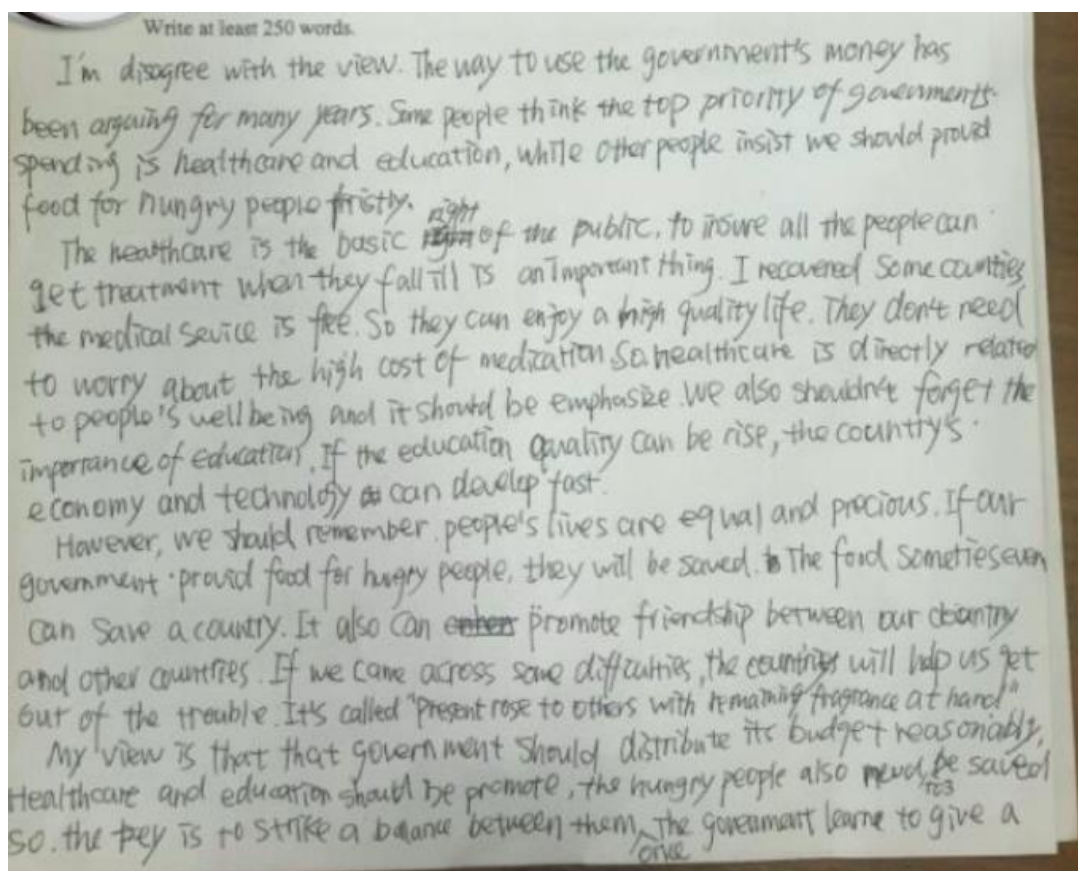 Write at least 250 words.
I'm disagree with the view. The way to use the government's money has
been arguing for many years. Some people think the top priority of governments
spending is healthcare and education, while other people insist we should provid
food for hungry people fristly.
The healthcare is the basic right of the public, to insure all the people can
get treatment when they fall ill is an important thing. I recovered some counties,
the medical sevice is free. So they can enjoy a high quality life. They don't need
to worry about the high cost of medication. So healthcare is directly related
to people's wellbeing and it should be emphasize. We also shouldn't forget the
importance of education. If the education quality can be rise, the country's
economy and technology can develop fast.
However, we should remember people's lives are equal and precious. If our
government provid food for hugry people, they will be saved. The food someties even
can save a country. It also can promote friendship between our country
and other countries. If we came across some difficulties, the countries will help us get
out of the trouble. It's called "Present rose to others with remaining fragrance at hand"
My view is that that government should distribute its budget reasonably,
Healthcare and education should be promote, the hungry people also need be saved
to
so. the key is to strike a balance between them, The government learne to give a
once